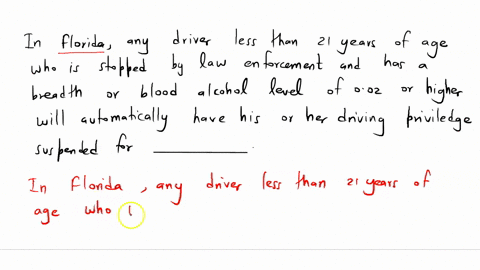 In Florida, any driver less than 21 years of age
who is stopped by law enforcement and has a
breadth or blood alcohol level of 0.02 or higher
will automatically have his or her driving priviledge
suspended for ____________.
In Florida, any driver less than 21 years of
age who